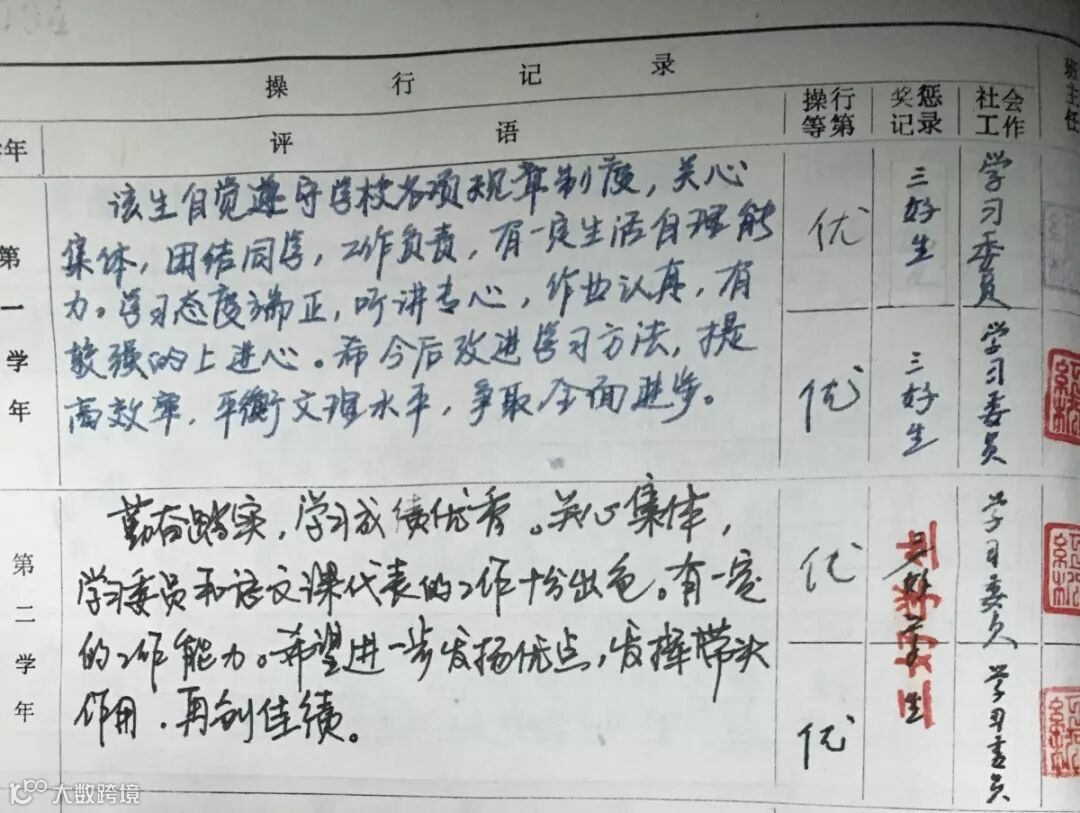 操行记录
学年
评语
操行等第
奖惩记录
社会工作
班主任
第一学年
该生自觉遵守学校各项规章制度，关心
集体，团结同学，工作负责，有一定生活自理能
力。学习态度端正，听讲专心，作业认真，有
较强的上进心。希今后改进学习方法，提
高效率，平衡文理水平，争取全面进步。
优
三好生
学习委员
优
三好生
学习委员
第二学年
勤奋踏实，学习成绩优秀。关心集体，
学习委员和语文课代表的工作十分出色。有一定
的工作能力。希望进一步发扬优点，发挥带头
作用，再创佳绩。
优
三好学生
学习委员
优
学习委员
大数跨境